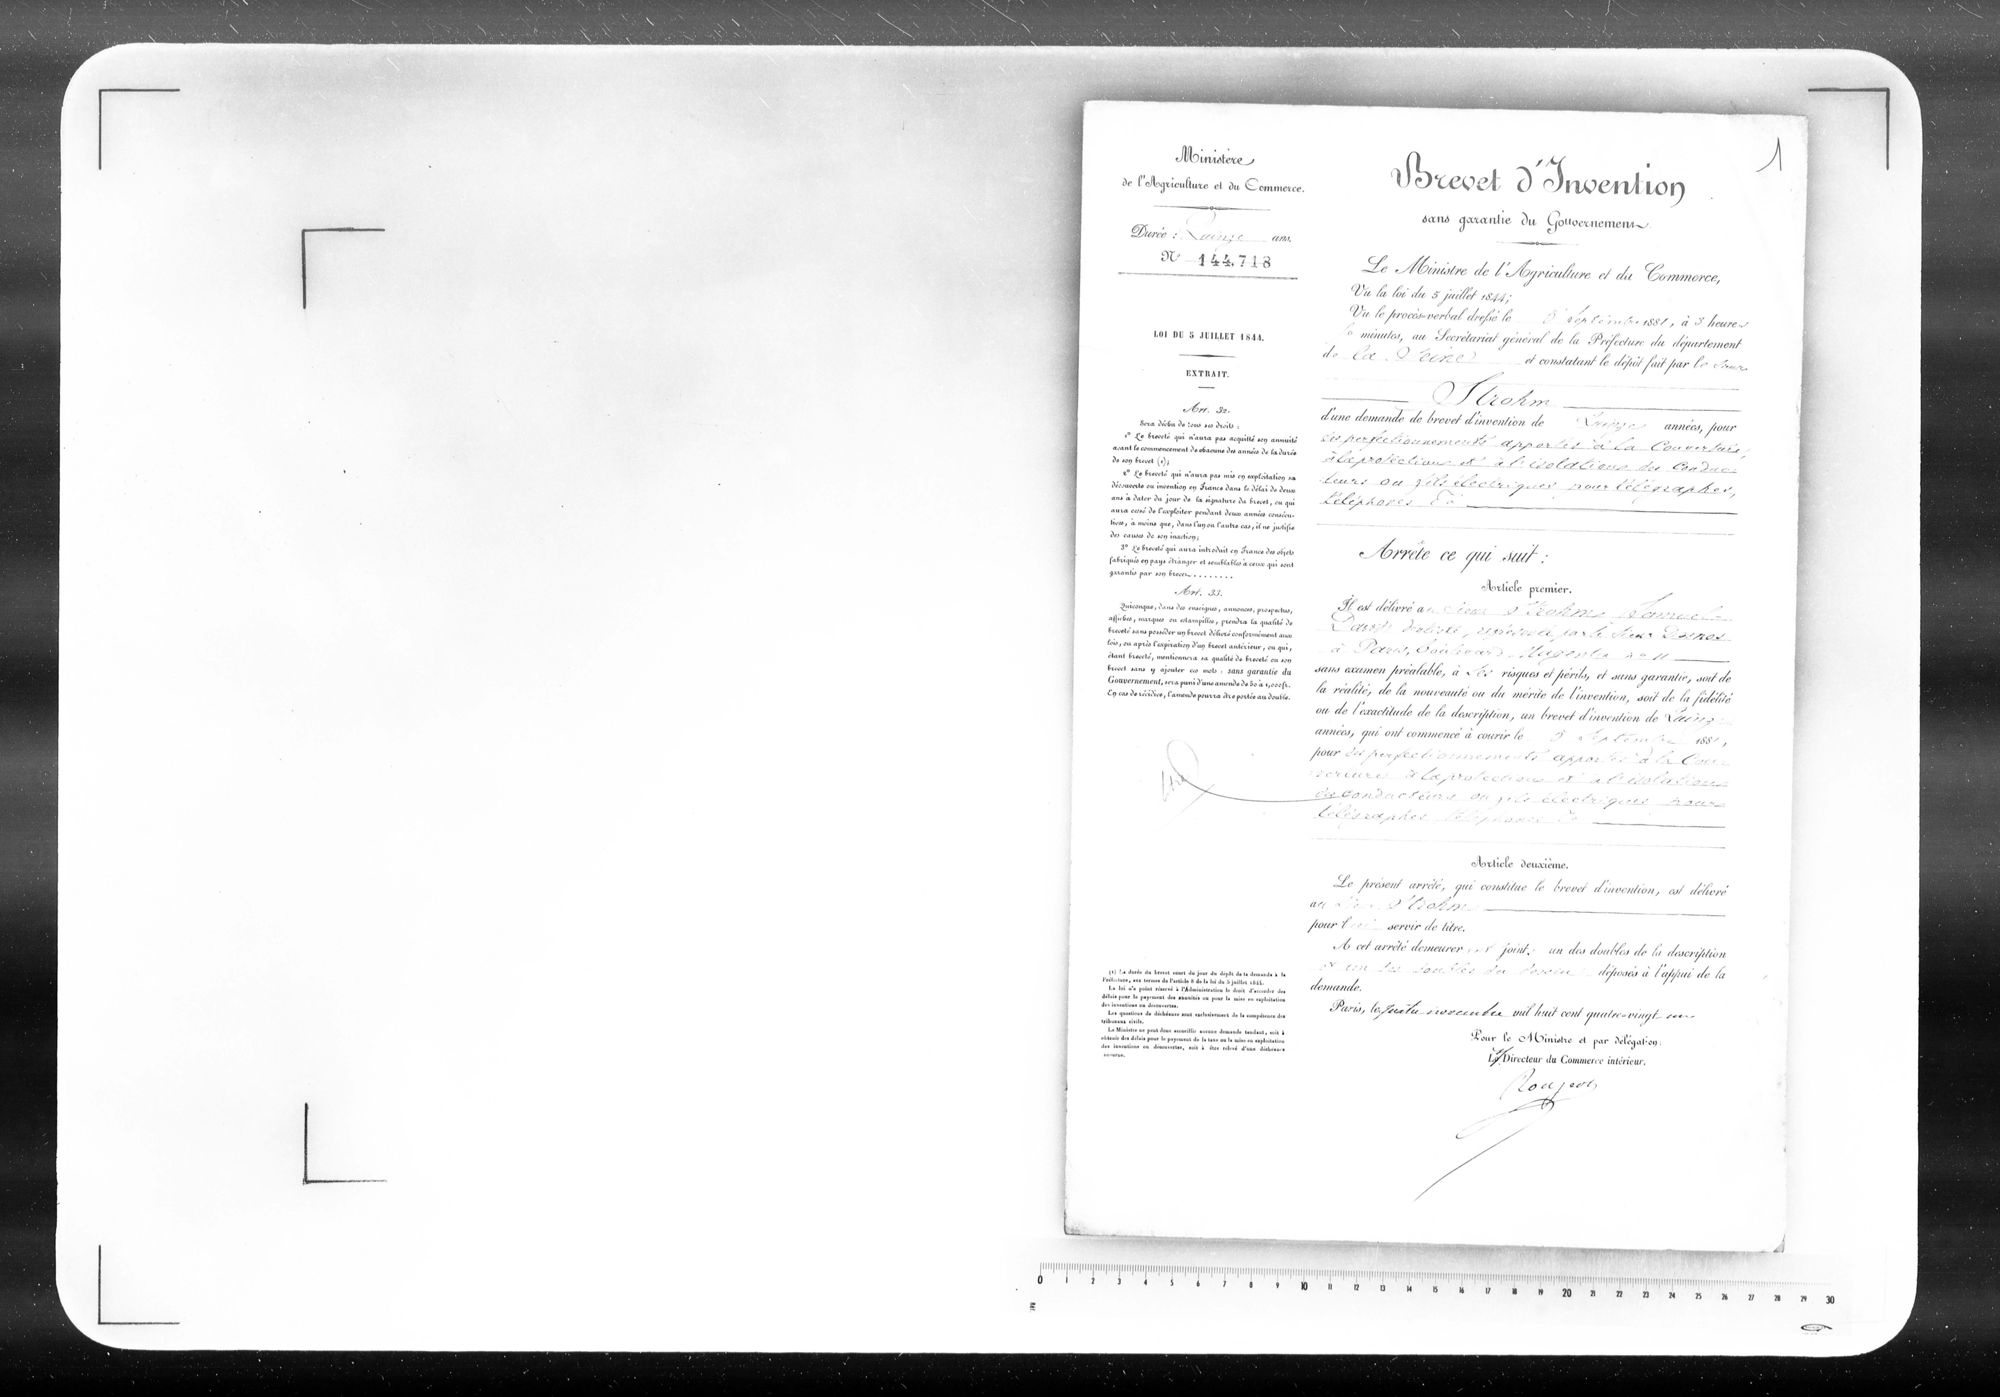 1
Ministère
de l'Agriculture et du Commerce.
Durée : Quinze ans.
N° 144.718
LOI DU 5 JUILLET 1844.
EXTRAIT.
Art. 32.
Sera déchu de tous ses droits :
1° Le breveté qui n'aura pas acquitté son annuité
avant le commencement de chacune des années de la durée
de son brevet (1);
2° Le breveté qui n'aura pas mis en exploitation sa
découverte ou invention en France dans le délai de deux
ans à dater du jour de la signature du brevet, ou qui
aura cessé de l'exploiter pendant deux années consécu-
tives, à moins que, dans l'un ou l'autre cas, il ne justifie
des causes de son inaction;
3° Le breveté qui aura introduit en France des objets
fabriqués en pays étranger et semblables à ceux qui sont
garantis par son brevet........
Art. 33.
Quiconque, dans des enseignes, annonces, prospectus,
affiches, marques ou estampilles, prendra la qualité de
breveté sans posséder un brevet délivré conformément aux
lois, ou après l'expiration d'un brevet antérieur, ou qui,
étant breveté, mentionnera sa qualité de breveté ou son
brevet sans y ajouter ces mots : sans garantie du
Gouvernement, sera puni d'une amende de 50 à 1,000 fr.
En cas de récidive, l'amende pourra être portée au double.
(1) La durée du brevet court du jour du dépôt de la demande à la
Préfecture, aux termes de l'article 8 de la loi du 5 juillet 1844.
La loi n'a point réservé à l'Administration le droit d'accorder des
délais pour le payement des annuités ou pour la mise en exploitation
des inventions ou découvertes.
Les questions de déchéance sont exclusivement de la compétence des
tribunaux civils.
Le Ministre ne peut donc accueillir aucune demande tendant, soit à
obtenir des délais pour le payement de la taxe ou la mise en exploitation
des inventions ou découvertes, soit à être relevé d'une déchéance
encourue.
Brevet d'Invention
sans garantie du Gouvernement.
Le Ministre de l'Agriculture et du Commerce,
Vu la loi du 5 juillet 1844;
Vu le procès-verbal dressé le 5 Septembre 1881, à 3 heures
minutes, au Secrétariat général de la Préfecture du département
de la Seine et constatant le dépôt fait par le Sieur
Strohm
d'une demande de brevet d'invention de Quinze années, pour
des perfectionnements apportés à la Couverture,
à la protection et à l'isolation des Conduc-
teurs ou fils électriques pour télégraphes,
téléphones &a
Arrête ce qui suit :
Article premier.
Il est délivré au Sieur Strohm Samuel
représenté par le Sieur Desnos
à Paris, boulevard Magenta no 11
sans examen préalable, à ses risques et périls, et sans garantie, soit de
la réalité, de la nouveauté ou du mérite de l'invention, soit de la fidélité
ou de l'exactitude de la description, un brevet d'invention de Quinze
années, qui ont commencé à courir le 5 Septembre 1881,
pour des perfectionnements apportés à la Cou-
verture à la protection et à l'isolation
des conducteurs ou fils électriques pour
télégraphes téléphones &a
Article deuxième.
Le présent arrêté, qui constitue le brevet d'invention, est délivré
au Sieur Strohm
pour lui servir de titre.
A cet arrêté demeurer joint un des doubles de la description
et un des doubles du dessin déposés à l'appui de la
demande.
Paris, le huit novembre mil huit cent quatre-vingt-un
Pour le Ministre et par délégation:
Le Directeur du Commerce intérieur.
0 1 2 3 4 5 6 7 8 9 10 11 12 13 14 15 16 17 18 19 20 21 22 23 24 25 26 27 28 29 30